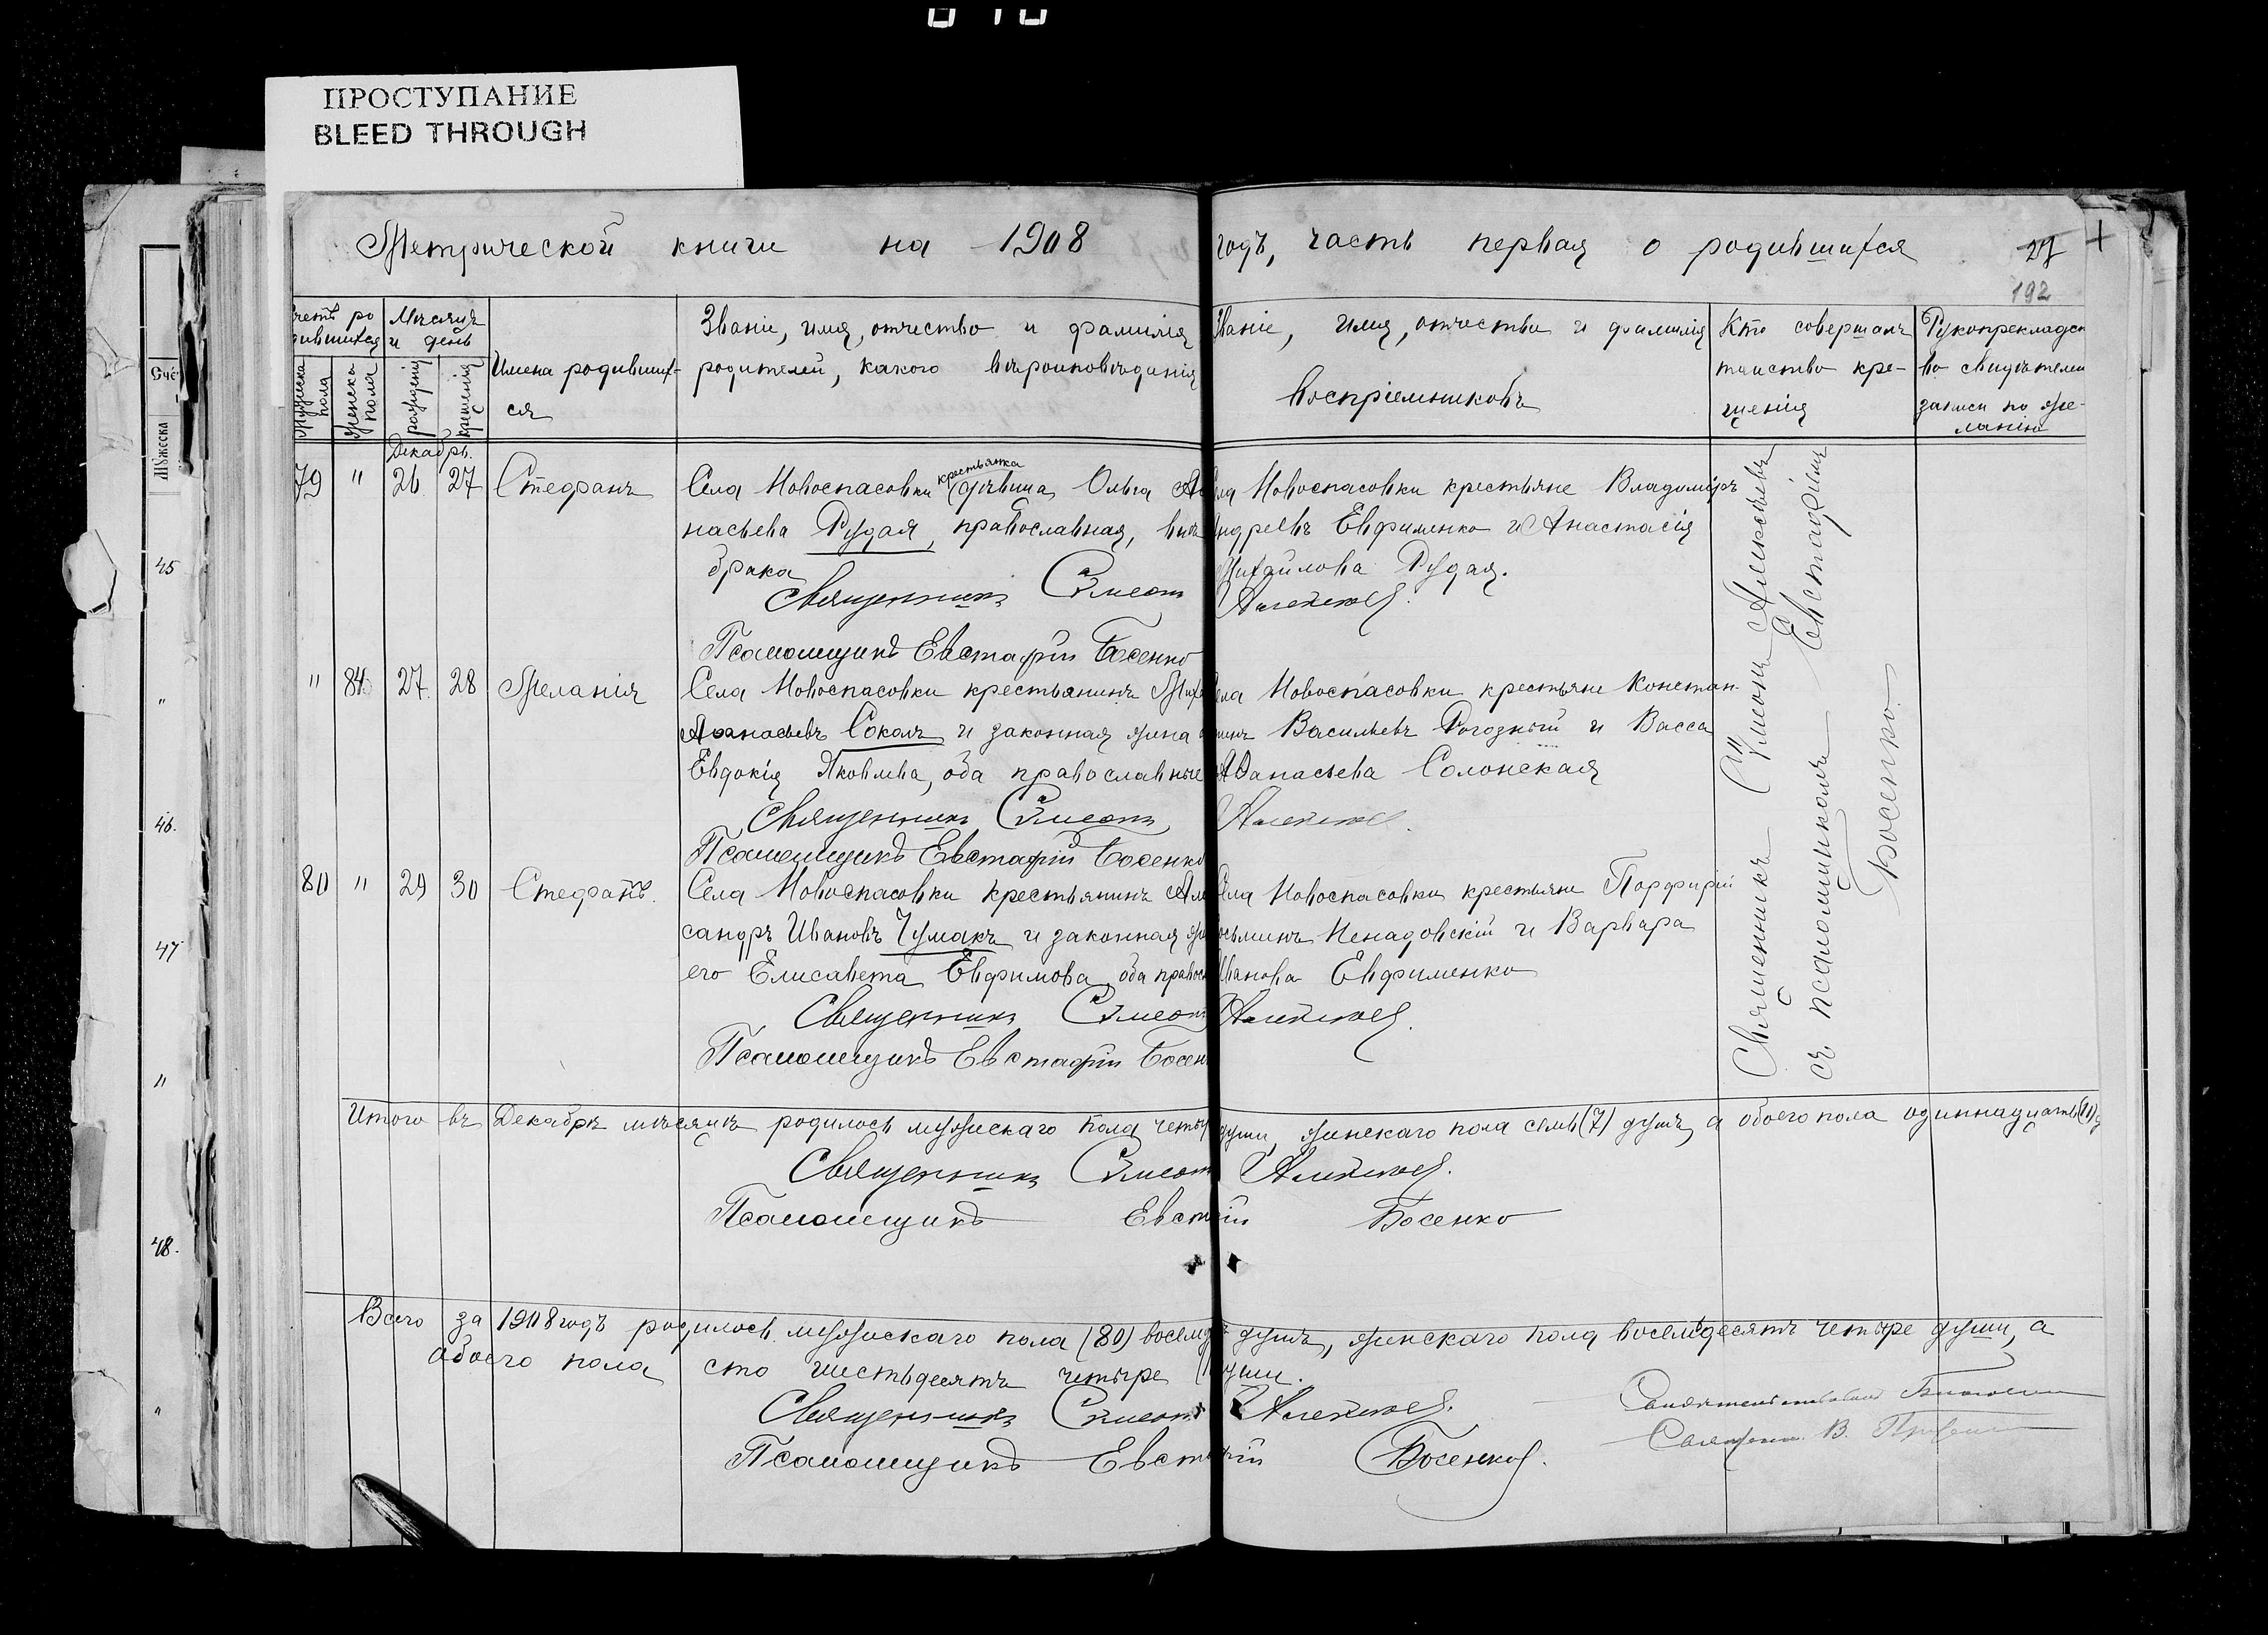 ПРОСТУПАНИЕ
BLEED THROUGH
Метрической книги на 1908 годъ, часть первая о родившихся
27
192
Счетъ ро
дившихся
Мужеска пола
Женска пола
Мѣсяцъ
и день
рожденія
крещенія
Имена родивших-
ся
Званіе, имя, отчество и фамилія
родителей, какого вѣроисповѣданія
Званіе, имя, отчество и фамилія
воспріемниковъ
Кто совершалъ
таинство кре-
щенія
Рукоприкладст
во свидѣтелей
записи по же-
ланію
Декабрь.
79 " 26 27 Стефанъ
крестьянка
Села Новоспасовки дѣвица Ольга Аѳ
насьева Рудая, православная, внѣ
брака
Священникъ Симеонъ Алексѣевъ
Псаломщикъ Евстафій Босенко
Села Новоспасовки крестьяне Владиміръ
Андреевъ Евфименко и Анастасія
Михайлова Рудая.
" 84 27 28 Меланія
Села Новоспасовки крестьянинъ Мих
Аѳанасьевъ Соколъ и законная жена
Евдокія Яковлева, оба православные
Священникъ Симеонъ Алексѣевъ
Псаломщикъ Евстафій Босенко
Села Новоспасовки крестьяне Констан-
тинъ Васильевъ Рогозный и Васса
Аѳанасьева Солонская
80 " 29 30 Стефанъ.
Села Новоспасовки крестьянинъ Але
сандръ Ивановъ Чумакъ и законная же
его Елисавета Евфимова, оба правосл
Священникъ Симеонъ Алексѣевъ
Псаломщикъ Евстафій Босен
Села Новоспасовки крестьяне Порфирій
Косьминъ Ненадовскій и Варвара
Иванова Евфименко
Священникъ Симеонъ Алексѣевъ
съ псаломщикомъ Евстафіемъ
Босенко
Итого въ Декабрѣ мѣсяцѣ родилось мужескаго пола четы души, женскаго пола семь (7) душъ, а обоего пола одиннадцать (11) д
Священникъ Симеонъ Алексѣевъ.
Псаломщикъ Евстафій Босенко
Всего за 1908 годъ родилось мужескаго пола (80) восемд душъ, женскаго пола восемьдесятъ четыре души, а
обоего пола сто шестьдесятъ четыре души.
Священникъ Симеонъ Алексѣевъ.
Псаломщикъ Евстафій Босенко.
Счё
Мужеска
45
"
46.
47
"
48.
"